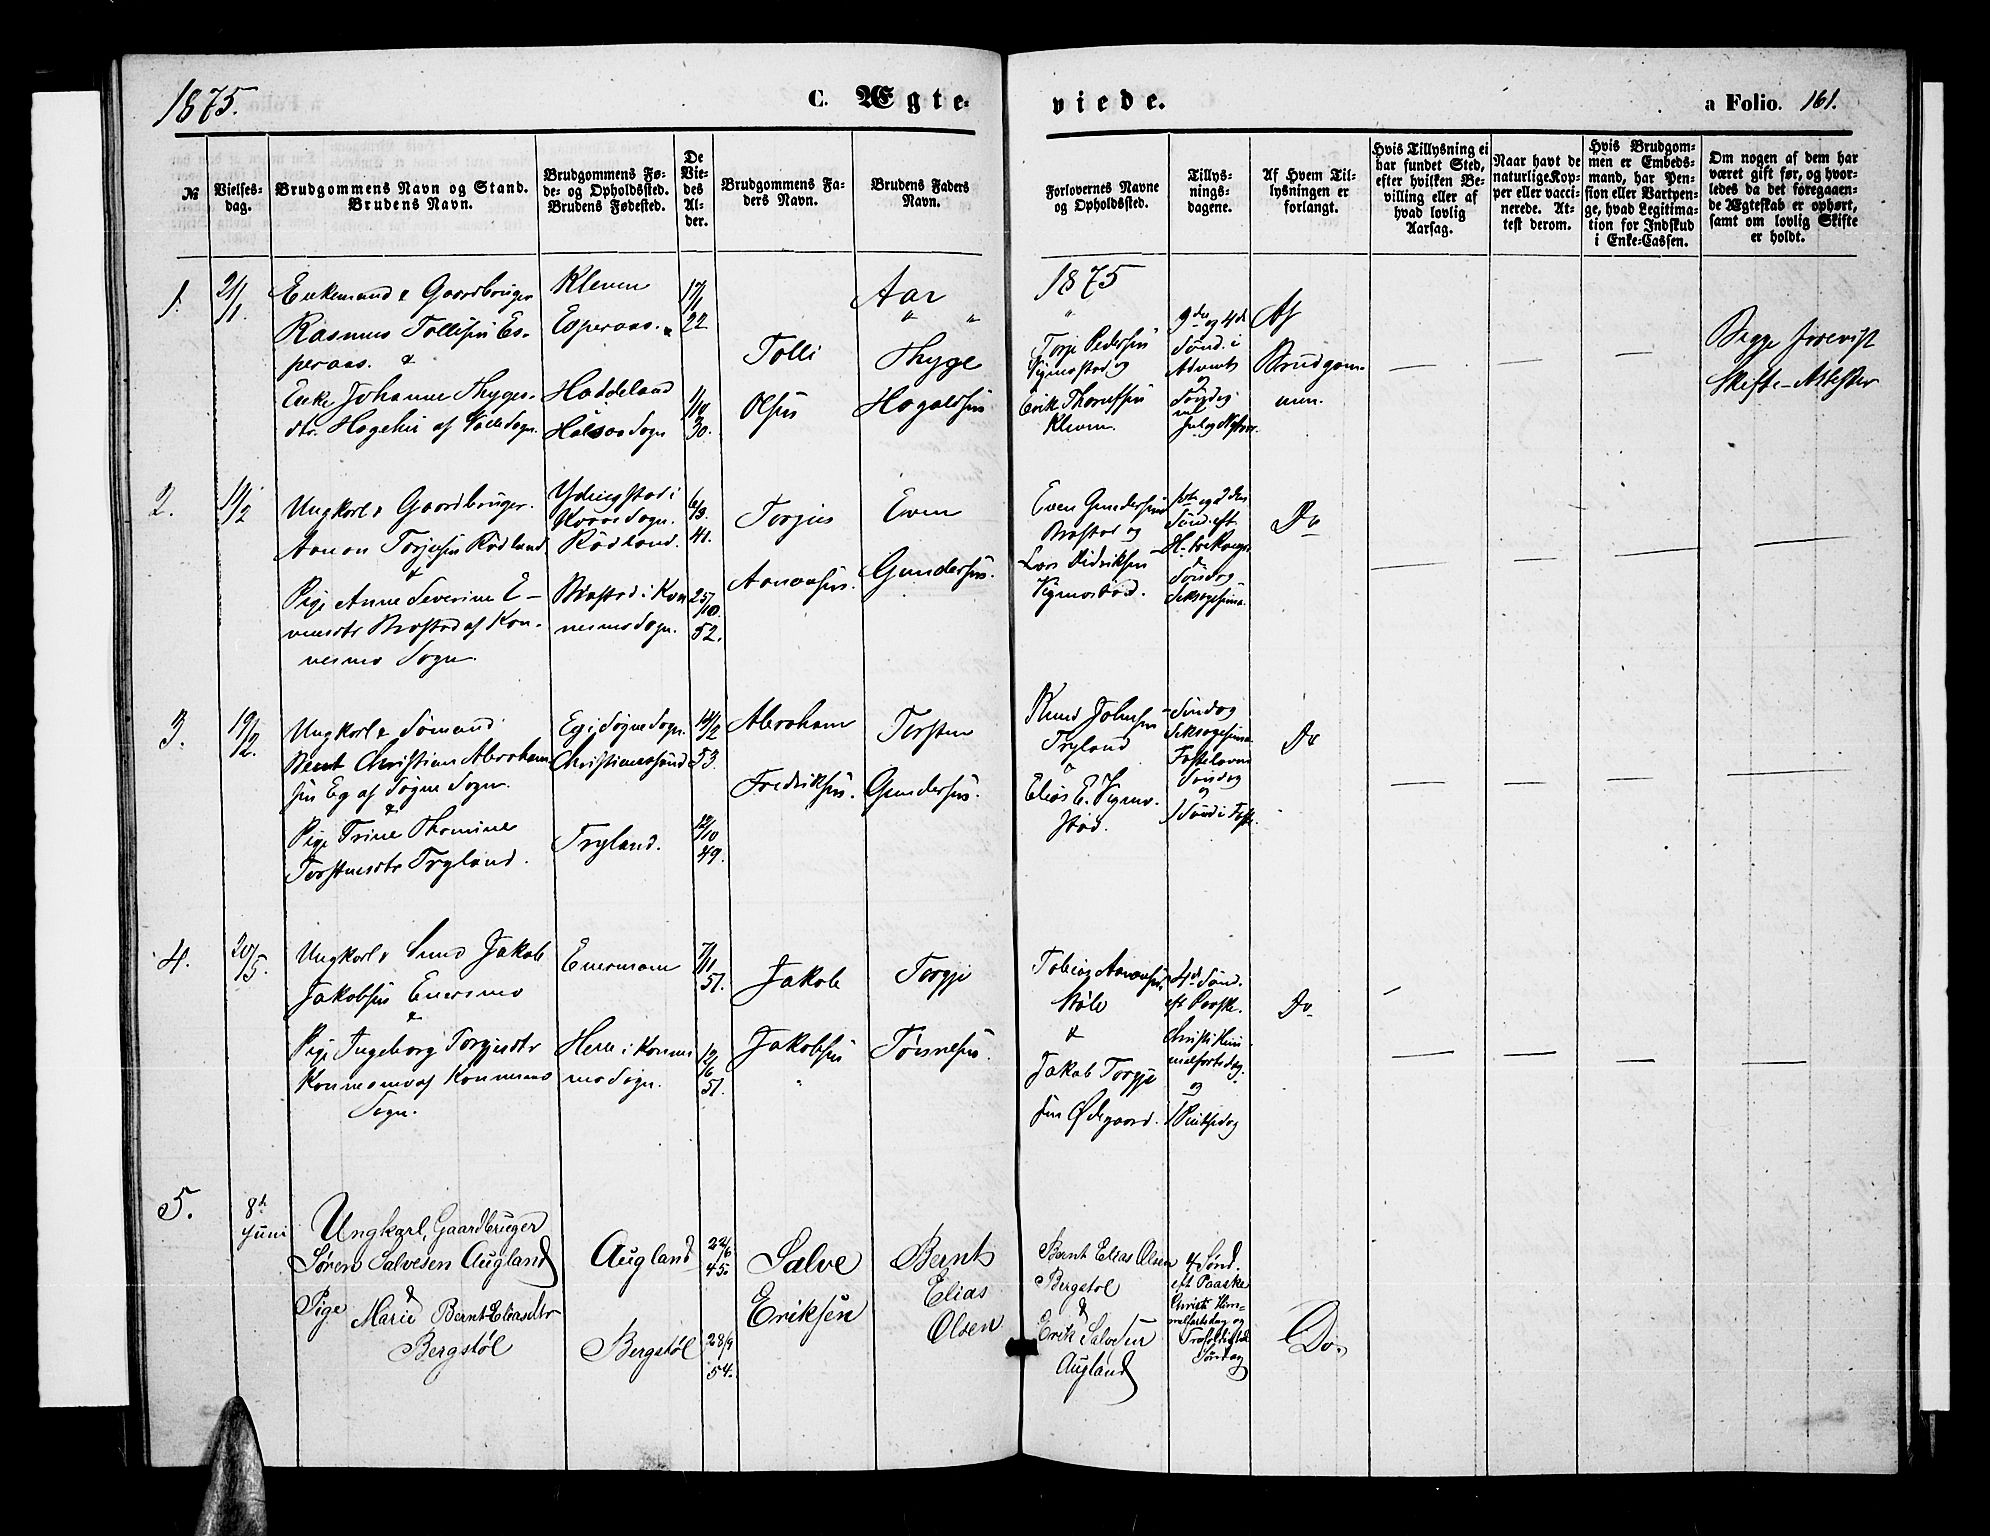 1875.
C. Ægte-
viede.
a Folio. 161.
№
Vielses-
dag.
Brudgommens Navn og Stand.
Brudens Navn.
Brudgommens Fø-
de- og Opholdssted.
Brudens Fødested.
De
Vie-
des
Al-
der.
Brudgommens Fa-
ders Navn.
Brudens Faders
Navn.
Forlovernes Navne
og Opholdssted.
Tillys-
nings-
dagene.
Af Hvem Til-
lysningen er
forlangt.
Hvis Tillysning ei
har fundet Sted,
efter hvilken Be-
villing eller af
hvad lovlig
Aarsag.
Naar havt de
naturlige Kop-
per eller vacci-
nerede. At-
test derom.
Hvis Brudgom-
men er Embeds-
mand, har Pen-
sion eller Vartpen-
ge, hvad Legitima-
tion for Indskud
i Enke-Cassen.
Om nogen af dem har
været gift før, og hvor-
ledes da det foregaaen-
de Ægteskab er ophørt,
samt om lovlig Skifte
er holdt.
1.
21/1
Enkemand & Gaardbruger
Rasmus Tollisen Es-
peraas. &
Enke Johanne Thyges-
dtr. af Sogn.
Kleven
Esperaas.
Haddeland
Halsaa Sogn
17/1
22
1/10
30.
Tolli
Olsen
Aar
Thyge
1875
Torje Pedersen
Vigmostad og
Erik
Kleven.
og 4de
Sønd. i
Advent
og
Søndag
Af
Brudgom-
men.
Begge forevist
Skifte-Attester
2.
11/2
Ungkarl & Gaardbruger.
Aanon Torjusen Rødland
&
Pige Anne Severine E-
vensdtr Brastad af Kon-
nesmo Sogn.
i
Sogn.
Rødland.
Brastad i Kon
nesmo Sogn.
6/3
41.
25/10
52.
Torjus
Aanonsen.
Even
Gundersen.
Even Gundersen
Brastad og
Lars Didriksen
Vigmostad.
1ste og 2den
Sønd. eft.
H. tre Konger
&
Søndag
Seksagesima
Do
3.
19/2.
Ungkarl & Sømand
Bent Christian Abraham
sen Eg af Søgne Sogn.
&
Pige Trine Thomine
Torstensdtr Tryland.
Eg i Søgne Sogn.
Christianssand
Tryland.
14/2
53.
12/10
49.
Abraham
Fredriksen.
Torsten
Gundersen.
Knud Johnsen
Tryland
&
Elias E. Vigmo-
stad.
Søndag
Seksagesima
Fastelavns
Søndag
og
1 Sønd i Faste.
Do
4.
20/5.
Ungkarl & Smed Jakob
Jakobsen Eversmo
&
Pige Ingeborg Torgjesdtr
Konnesmo af Konnesmo
Sogn.
i Konnes
mo Sogn.
7/11
51.
12/6
51.
Jakob
Jakobsen
Torgje
Tobias Aanonsen
&
Jakob Torgje
sen Ødegaard.
4de Sønd.
eft Paaske.
Christi Him
melfartsdag.
og
1 Pintsedag
Do
5.
8de
Juni
Ungkarl, Gaardbruger
Søren Salvesen Augland
&
Pige Marie Bernt-Eliasdtr
Bergstøl
Augland
Bergstøl
22/6
45.
28/9
54.
Salve
Eriksen
Bernt
Elias
Olsen
Bernt Elias Olsen
Bergstøl
&
Erik Salvesen
Augland
4 Sønd.
eft Paaske
Christi Him-
melfartsdag og
Trefoldigheds
Søndag
Do.